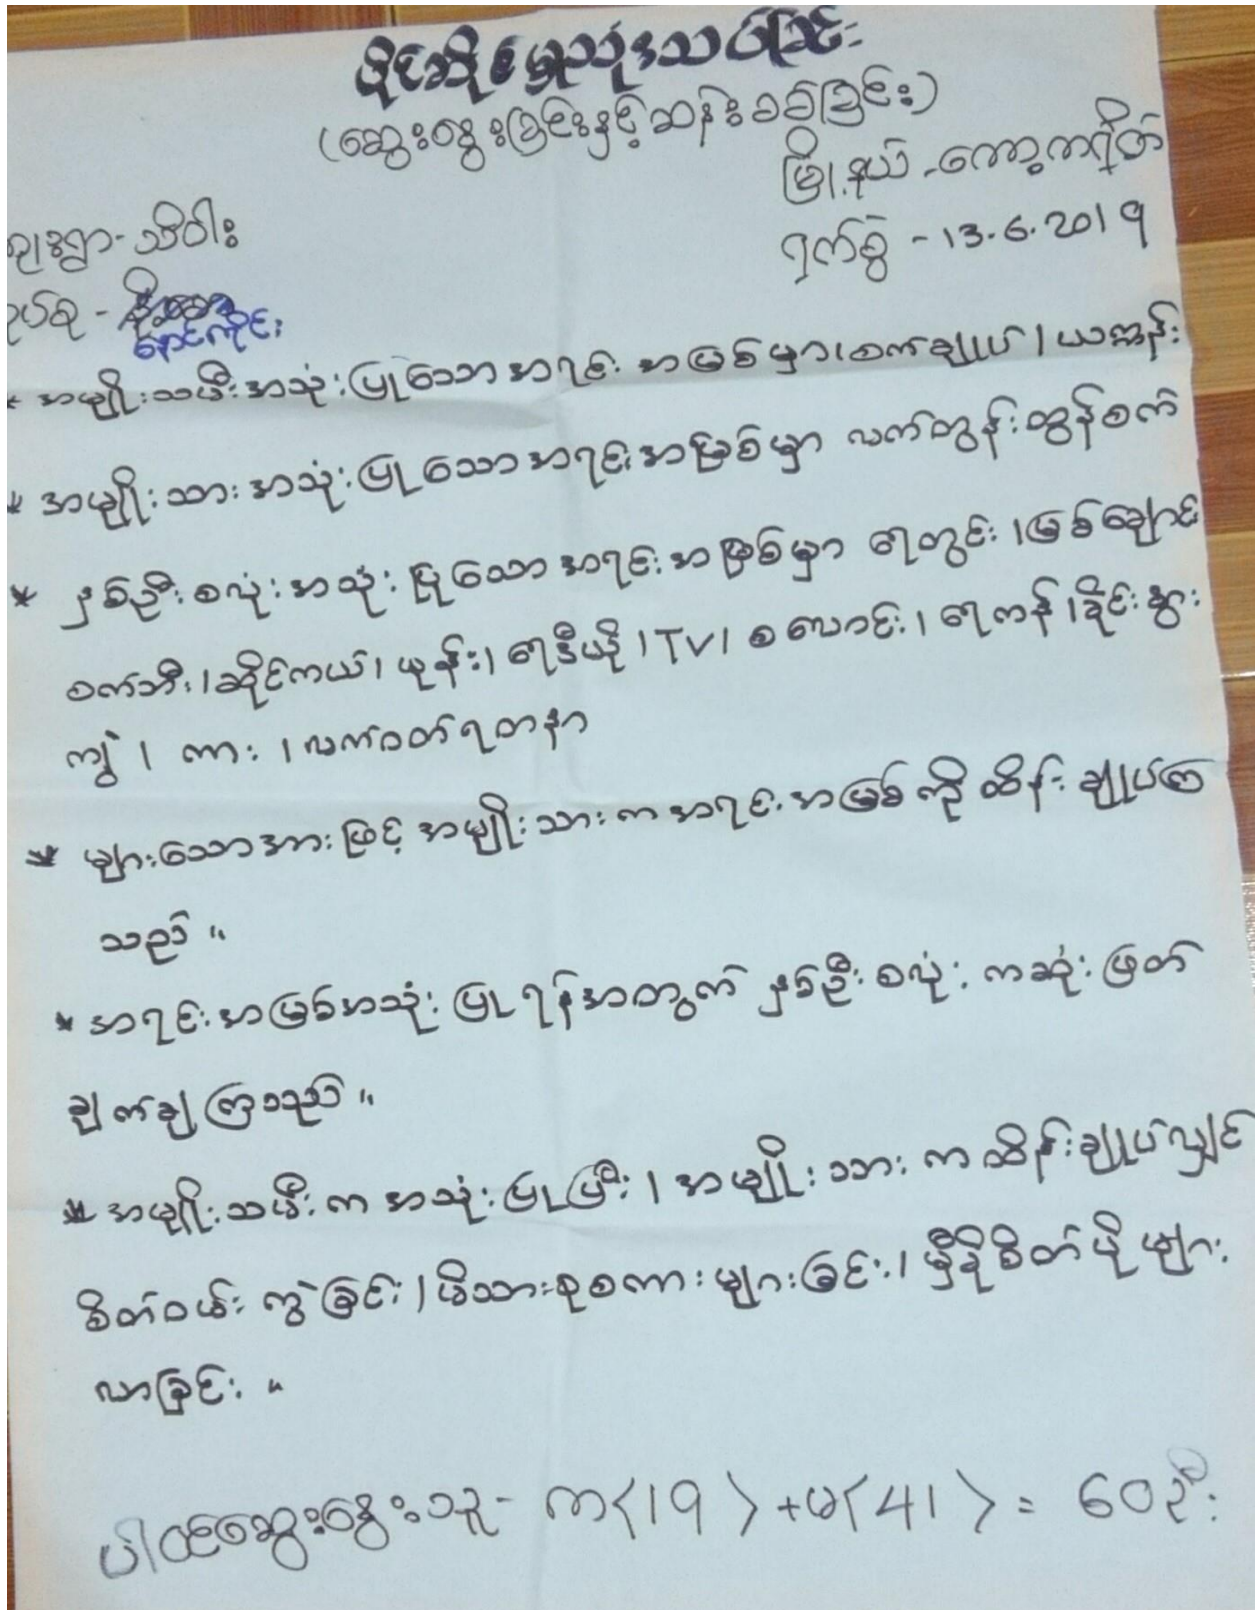 ပိုင်ဆိုင်မှုသုံးသပ်ခြင်း
(ဆွေးနွေးခြင်းနှင့်ဆန်းစစ်ခြင်း)
မြို့နယ် - ကော့ကရိတ်
ရွာ - သီဝါး
ရက်စွဲ - 13.6.2019
အုပ်စု -
နောင်ကိုင်း
* အမျိုးသမီးအသုံးပြုသောအရင်းအမြစ်မှာ၊စက်ချုပ်၊ယက္ကန်း
* အမျိုးသားအသုံးပြုသောအရင်းအမြစ်မှာ လက်တွန်းထွန်စက်
* နှစ်ဦးစလုံးအသုံးပြုသောအရင်းအမြစ်မှာ ရေတွင်း၊မြစ်ချောင်း
စက်ဘီး၊ဆိုင်ကယ်၊ဖုန်း၊ရေဒီယို၊TV၊စလောင်း၊ရေကန်၊ခိုင်းနွား
ကျွဲ၊ကား၊လက်ဝတ်ရတနာ
* များသောအားဖြင့်အမျိုးသားကအရင်းအမြစ်ကိုထိန်းချုပ်ကြ
သည်။
* အရင်းအမြစ်အသုံးပြုရန်အတွက်နှစ်ဦးစလုံးကဆုံးဖြတ်
ချက်ချကြသည်။
* အမျိုးသမီးကအသုံးပြုပြီး၊အမျိုးသားကထိန်းချုပ်လျှင်
စိတ်ဝမ်းကွဲခြင်း၊မိသားစုစကားများခြင်း၊မှီခိုစိတ်ပိုများ
လာခြင်း။
ပါဝင်ဆွေးနွေးသူ - က<19>+မ<41>= 60ဦး